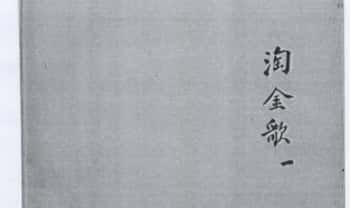 淘金歌一